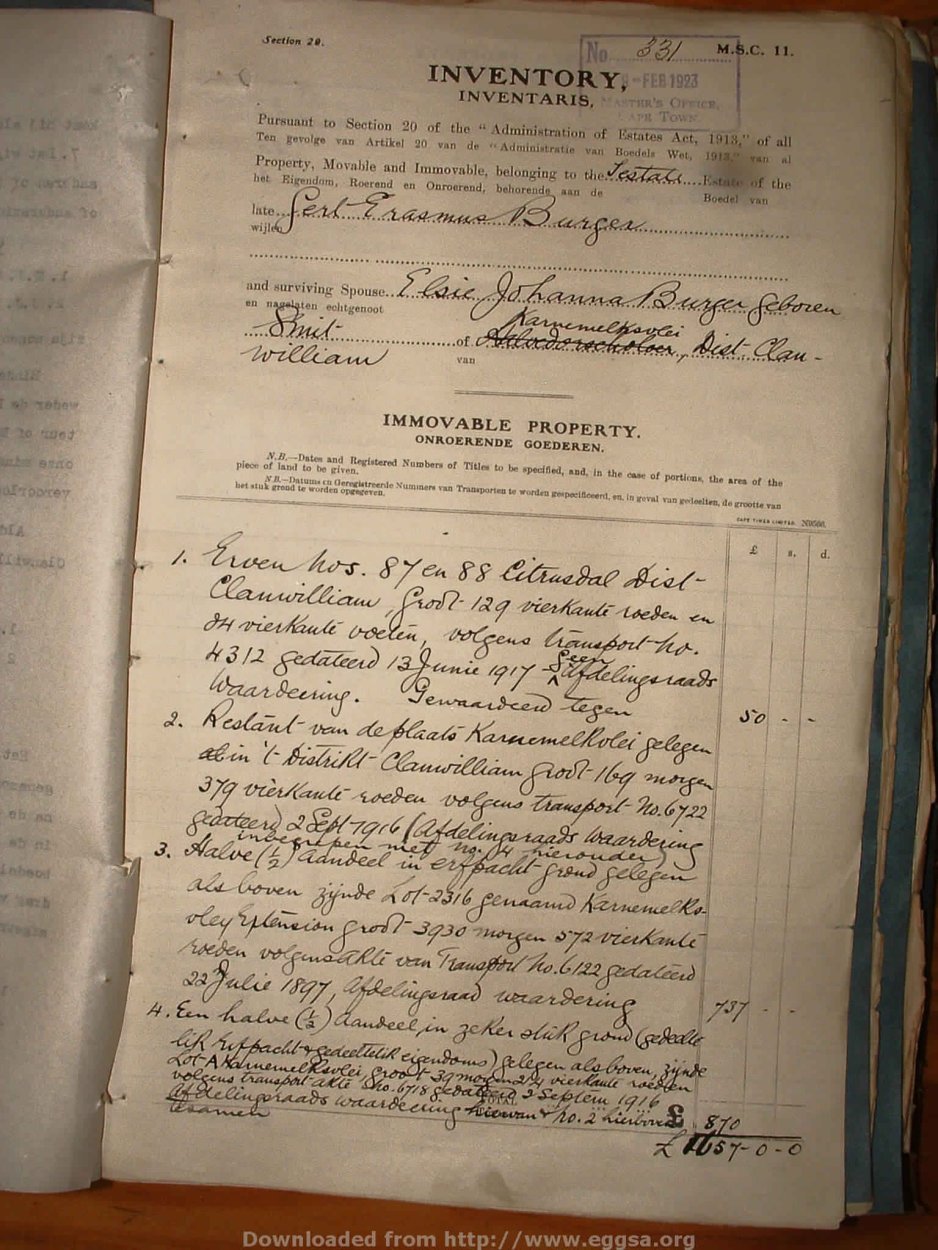 Section 20.
No. 331
M.S.C. 11.
-FEB 1923
MASTER'S OFFICE,
CAPE TOWN
INVENTORY,
INVENTARIS,
Pursuant to Section 20 of the "Administration of Estates Act, 1913," of all
Ten gevolge van Artikel 20 van de "Administratie van Boedels Wet, 1913," van al
Property, Movable and Immovable, belonging to the Testate Estate of the
het Eigendom, Roerend en Onroerend, behorende aan de Boedel van
late Gert Erasmus Burger
wijlen
and surviving Spouse Elsie Johanna Burger geboren
en nagelaten echtgenoot
Smit of Karnemelksvlei, Dist. Clan-
van
william
IMMOVABLE PROPERTY.
ONROERENDE GOEDEREN.
N.B.—Dates and Registered Numbers of Titles to be specified, and, in the case of portions, the area of the
piece of land to be given.
N.B.—Datums en Geregistreerde Nummers van Transporten te worden gespecificeerd, en, in geval van gedeelten, de grootte van
het stuk grond te worden opgegeven.
CAPE TIMES LIMITED.
£ s. d.
1. Erven Nos. 87 en 88 Citrusdal Dist-
Clanwilliam, Groot 129 vierkante roeden en
84 vierkante voeten, volgens transport No.
4312 gedateerd 13 Junie 1917 Geen Afdelingsraads
Waardeering. Gewaardeerd tegen 50 - -
2. Restant van de plaats Karnemelkvlei gelegen
in 't Distrikt Clanwilliam groot 169 morgen
379 vierkante roeden volgens transport No. 6722
gedateerd 2 Sept 1916 (Afdelingsraads Waardering
inbegrepen met no. 4 hieronder)
3. Halve (½) aandeel in erfpacht grond gelegen
als boven zijnde Lot 2316 genaamd Karnemelks-
vley Extension groot 3930 morgen 572 vierkante
roeden volgens akte van Transport No. 6122 gedateerd
22 Julie 1897, Afdelingsraad waardering 737 - -
4. Een halve (½) aandeel in zeker stuk grond (gedeelte
lik Erfpacht & gedeeltelik eigendoms) gelegen als boven, zijnde
Lot A Karnemelksvlei, groot 39 morgen 214 vierkante roeden
volgens transport akte No. 6718 gedateerd 2 Septem 1916
TOTAL
Afdelingsraads waardeering hiervan & No. 2 hierboven £ 870
tesamen
£ 1657-0-0
Downloaded from http://www.eggsa.org